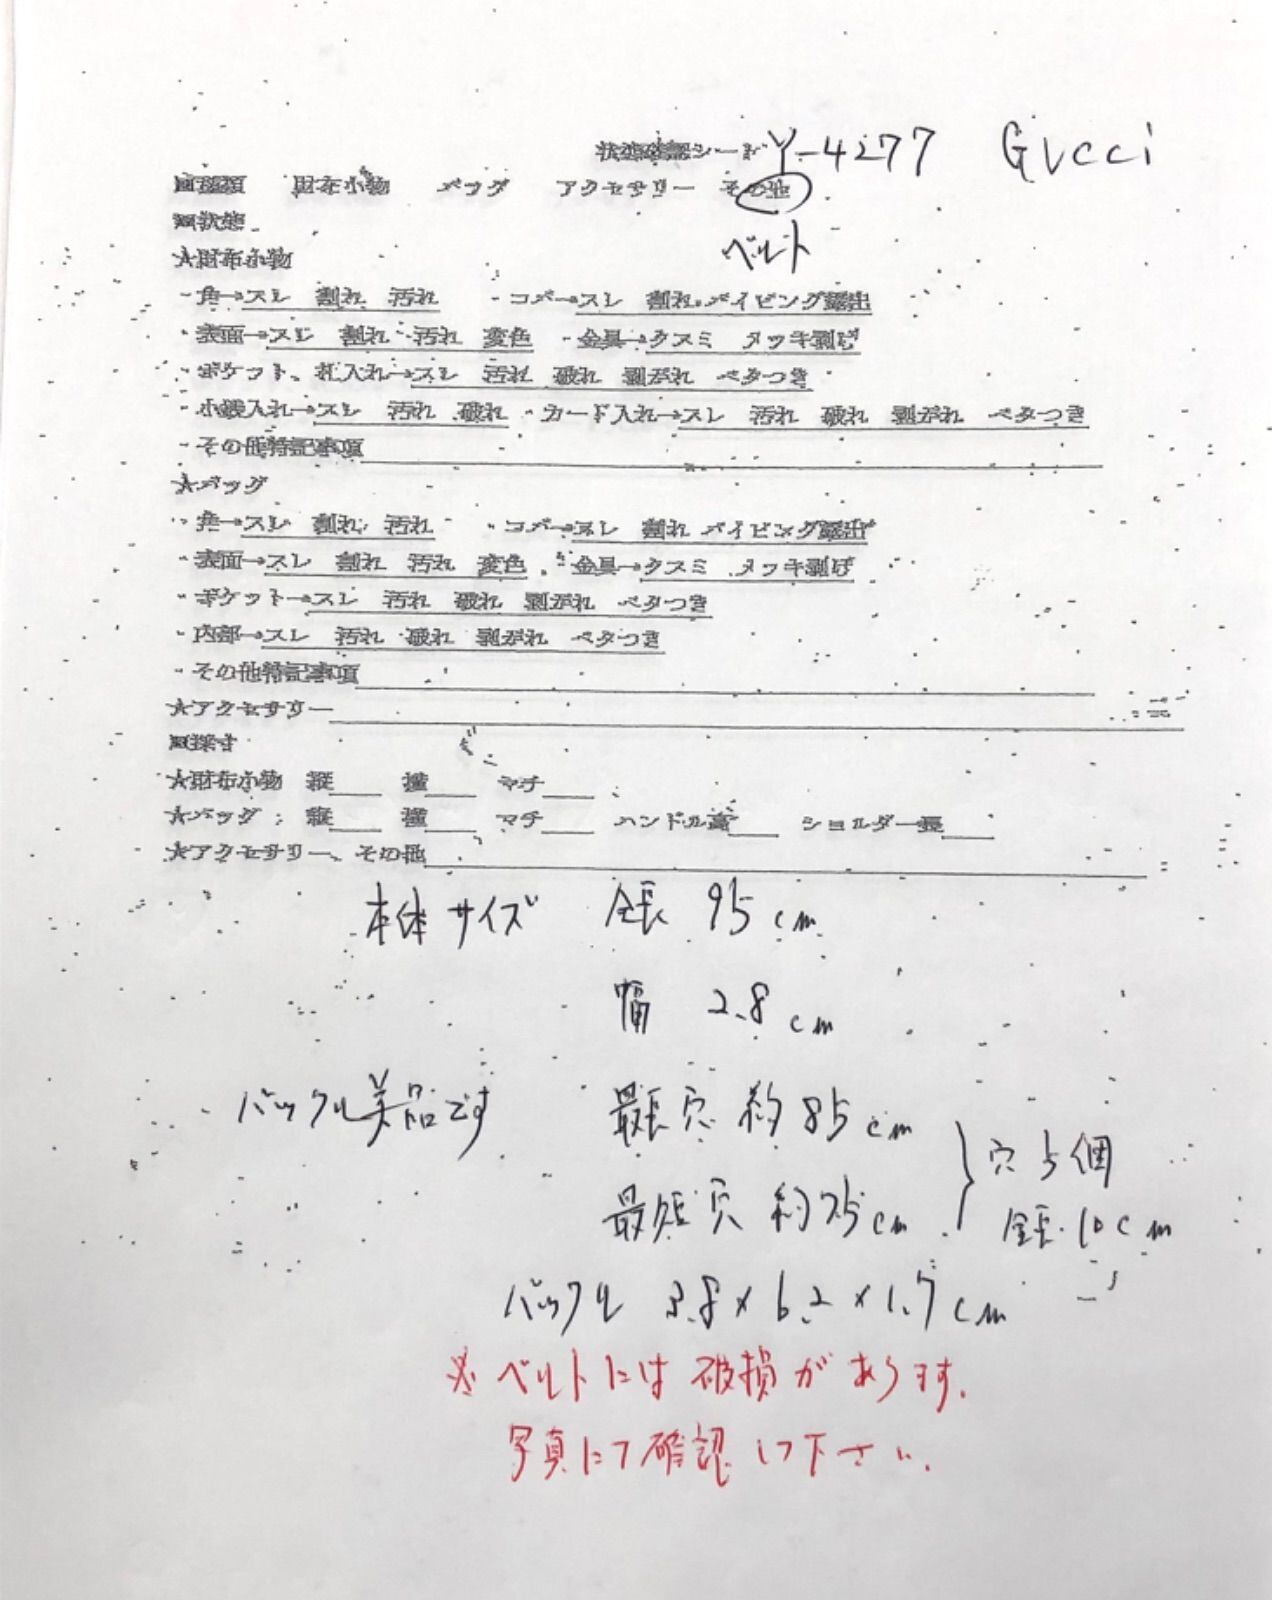 状態確認シート Y-4277 Gucci
■種類 財布小物 バッグ アクセサリー その他
ベルト
■状態
★財布小物
・角→スレ 割れ 汚れ ・コバ→スレ 割れ パイピング露出
・表面→スレ 割れ 汚れ 変色 ・金具→クスミ メッキ剥げ
・ポケット、札入れ→スレ 汚れ 破れ 剥がれ ベタつき
・小銭入れ→スレ 汚れ 破れ ・カード入れ→スレ 汚れ 破れ 剥がれ ベタつき
・その他特記事項
★バッグ
・角→スレ 割れ 汚れ ・コバ→スレ 割れ パイピング露出
・表面→スレ 割れ 汚れ 変色 ・金具→クスミ メッキ剥げ
・ポケット→スレ 汚れ 破れ 剥がれ ベタつき
・内部→スレ 汚れ 破れ 剥がれ ベタつき
・その他特記事項
★アクセサリー
■採寸
★財布小物 縦 横 マチ
★バッグ 縦 横 マチ ハンドル高 ショルダー長
★アクセサリー、その他
本体サイズ 全長 95cm
幅 2.8cm
バックル美品です 最長穴 約85cm
穴5個
最短穴 約75cm
全長10cm
バックル 3.8×6.2×1.7cm
※ベルトには破損があります。
写真にて確認して下さい。